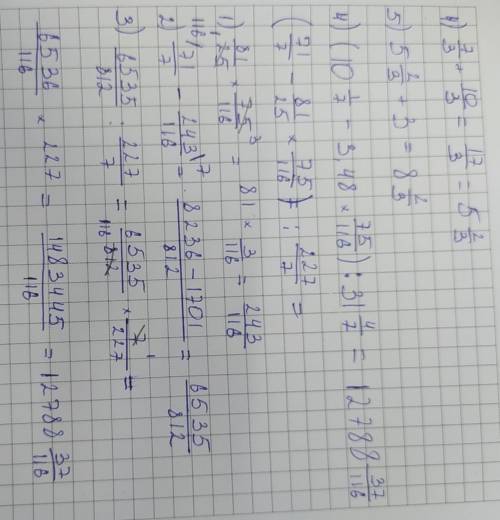 4) 7/3 + 10/3 = 17/3 = 5 2/3
5) 5 2/3 + 3 = 8 2/3
4) (10 1/7 - 3,48 × 75/116) : 31 4/7 = 12788 37/116
(71/7 - 81/25 × 75/116) : 227/7 =
1) 81/25 × 75³/116 = 81 × 3/116 = 243/116
2) 116/ 71/7 - 243\7/116 = 8236-1701/812 = 6535/812
3) 6535/812 : 227/7 = 6535/116 812 × 7 1/227 =
6536/116 × 227 = 1483445/116 = 12788 37/116